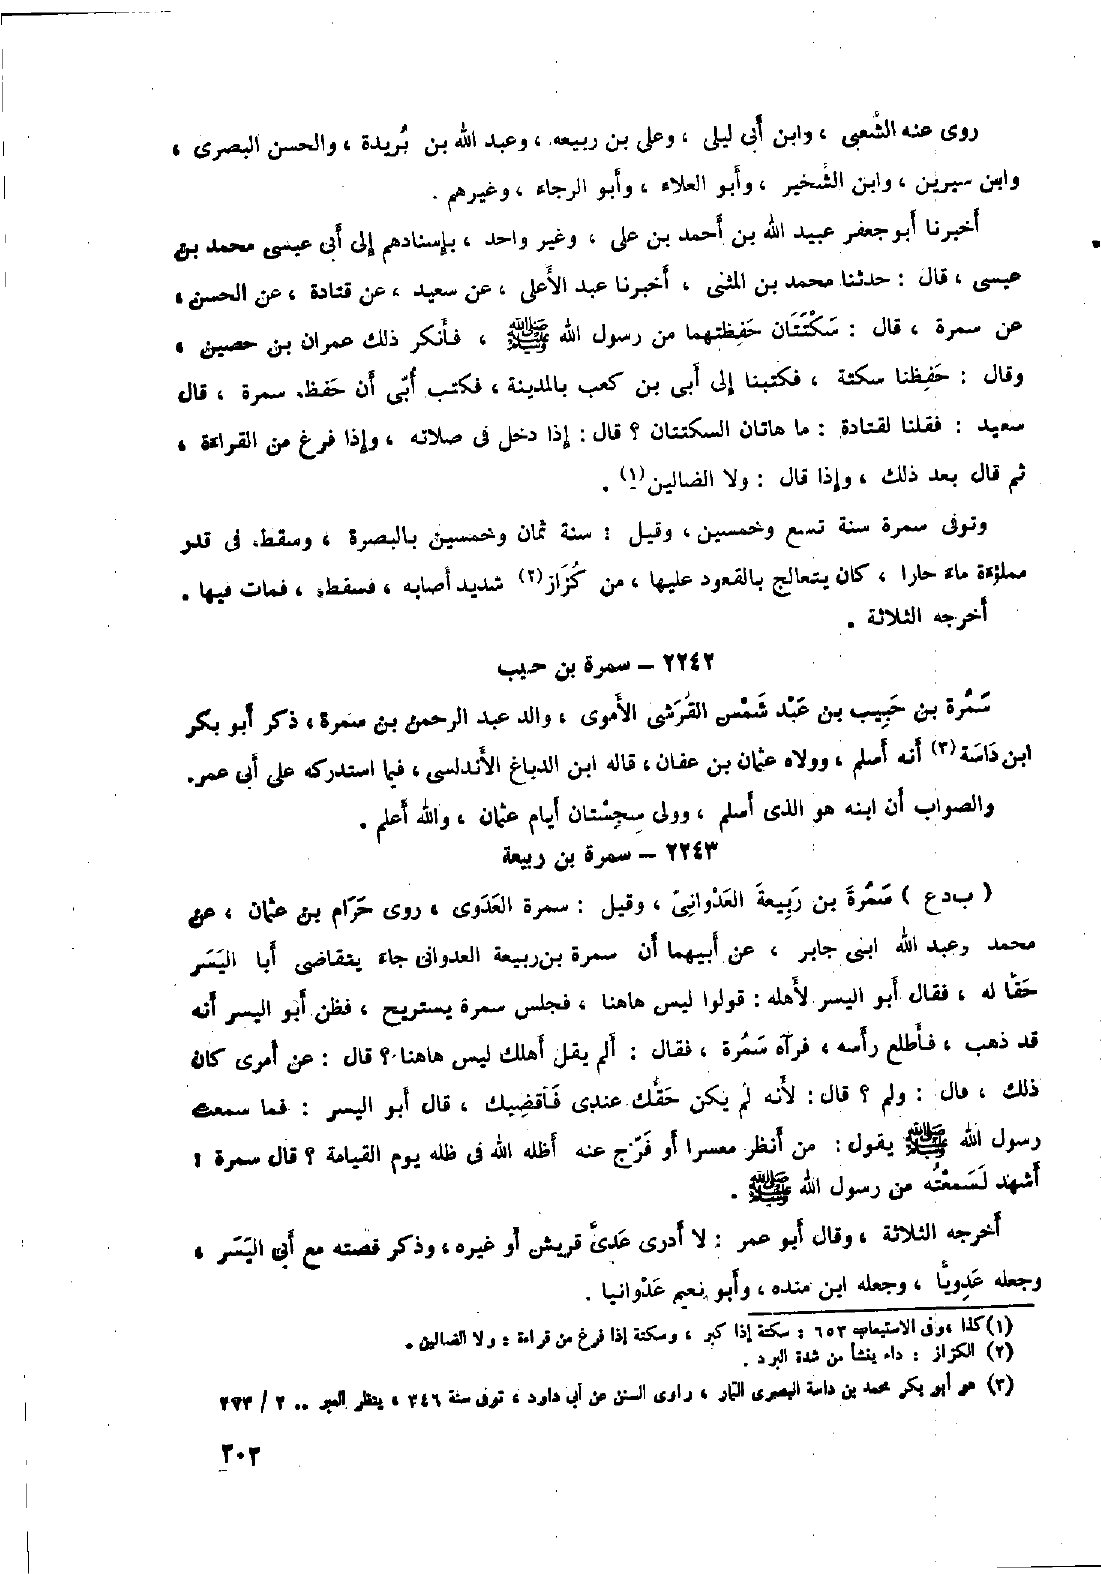 روى عنه الشَّعبى ، وابن أبى ليلى ، وعلى بن ربيعه ، وعبد الله بن بُريدة ، والحسن البصرى ،
وابن سيرين ، وابن الشِّخير ، وأبو العلاء ، وأبو الرجاء ، وغيرهم .
أخبرنا أبو جعفر عبيد الله بن أحمد بن على ، وغير واحد ، بإسنادهم إلى أبى عيسى محمد بن
عيسى ، قال : حدثنا محمد بن المثنى ، أخبرنا عبد الأعلى ، عن سعيد ، عن قتادة ، عن الحسن ،
عن سمرة ، قال : سَكْتَتَان حَفِظتهما من رسول الله ﷺ ، فأنكر ذلك عمران بن حصين ،
وقال : حَفِظنا سكتة ، فكتبنا إلى أبى بن كعب بالمدينة ، فكتب أُبّى أن حَفظ سمرة ، قال
سعيد : فقلنا لقتادة : ما هاتان السكتتان ؟ قال : إذا دخل فى صلاته ، وإذا فرغ من القراءة ،
ثم قال بعد ذلك ، وإذا قال : ولا الضالين (١) .
وتوفى سمرة سنة تسع وخمسين ، وقيل : سنة ثمان وخمسين بالبصرة ، وسقط فى قدر
مملوءة ماء حارا ، كان يتعالج بالقعود عليها ، من كُزَاز (٢) شديد أصابه ، فسقط ، فمات فيها .
أخرجه الثلاثة .
٢٢٤٢ – سمرة بن حبيب
سَمُرة بن حَبِيب بن عَبْد شَمْس القُرَشى الأموى ، والد عبد الرحمن بن سمرة ، ذكر أبو بكر
ابن دَاسَة (٣) أنه أسلم ، وولاه عثمان بن عفان ، قاله ابن الدباغ الأندلسى ، فيما استدركه على أبى عمر.
والصواب أن ابنه هو الذى أسلم ، وولى سِجِسْتان أيام عثمان ، والله أعلم .
٢٢٤٣ – سمرة بن ربيعة
( ب د ع ) سَمُرةَ بن رَبِيعةَ العَدْوانِىّ ، وقيل : سمرة العَدَوى ، روى حَرَام بن عثمان ، عن
محمد وعبد الله ابنى جابر ، عن أبيهما أن سمرة بن ربيعة العدوانى جاء يتقاضى أبا اليَسَر
حَقًّا له ، فقال أبو اليسر لأهله : قولوا ليس هاهنا ، فجلس سمرة يستريح ، فظن أبو اليسر أنه
قد ذهب ، فأطلع رأسه ، فرآه سَمُرة ، فقال : ألم يقل أهلك ليس هاهنا ؟ قال : عن أمرى كان
ذلك ، قال : ولم ؟ قال : لأنه لم يكن حَقُّك عندى فَأقضيك ، قال أبو اليسر : فما سمعت
رسول الله ﷺ يقول : من أنظر معسرا أو فَرّج عنه أظله الله فى ظله يوم القيامة ؟ قال سمرة :
أشهد لَسَمعْتُه من رسول الله ﷺ .
أخرجه الثلاثة ، وقال أبو عمر : لا أدرى عَدِىَّ قريش أو غيره ، وذكر قصته مع أبى اليَسَر ،
وجعله عَدِويًّا ، وجعله ابن منده ، وأبو نعيم عَدْوانيا .
(١) كذا ، وفى الاستيعاب ٦٥٣ : سكتة إذا كبر ، وسكتة إذا فرغ من قراءة : ولا الضالين .
(٢) الكزاز : داء ينشأ من شدة البرد .
(٣) هو أبو بكر محمد بن داسة البصرى التمار ، راوى السنن عن أبى داود ، توفى سنة ٣٤٦ ، ينظر العبر .. ٢ / ٢٧٣
٣٠٢